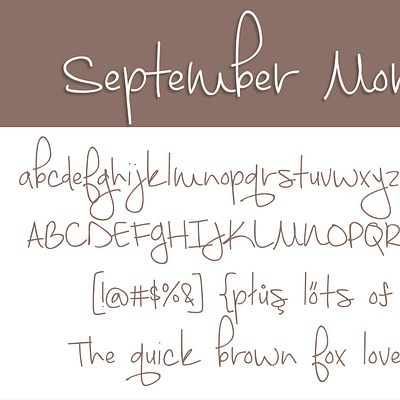 September Mor
abcdefghijklmnopqrstuvwxyz
ABCDEFGHIJKLMNOPQR
[!@#$%&] {płůş lőts of
The quick brown fox love